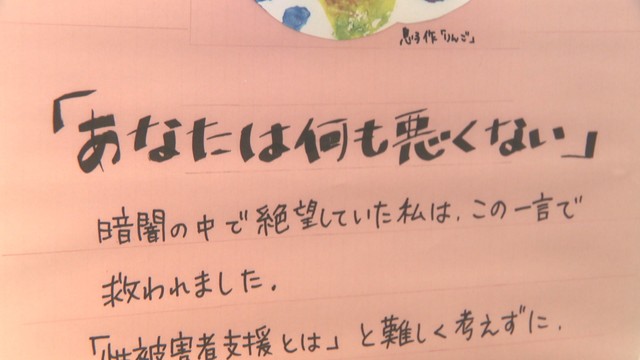 息子作「りんご」
「あなたは何も悪くない」
暗闇の中で絶望していた私は、この一言で
救われました。
「性被害者支援とは」と難しく考えずに、